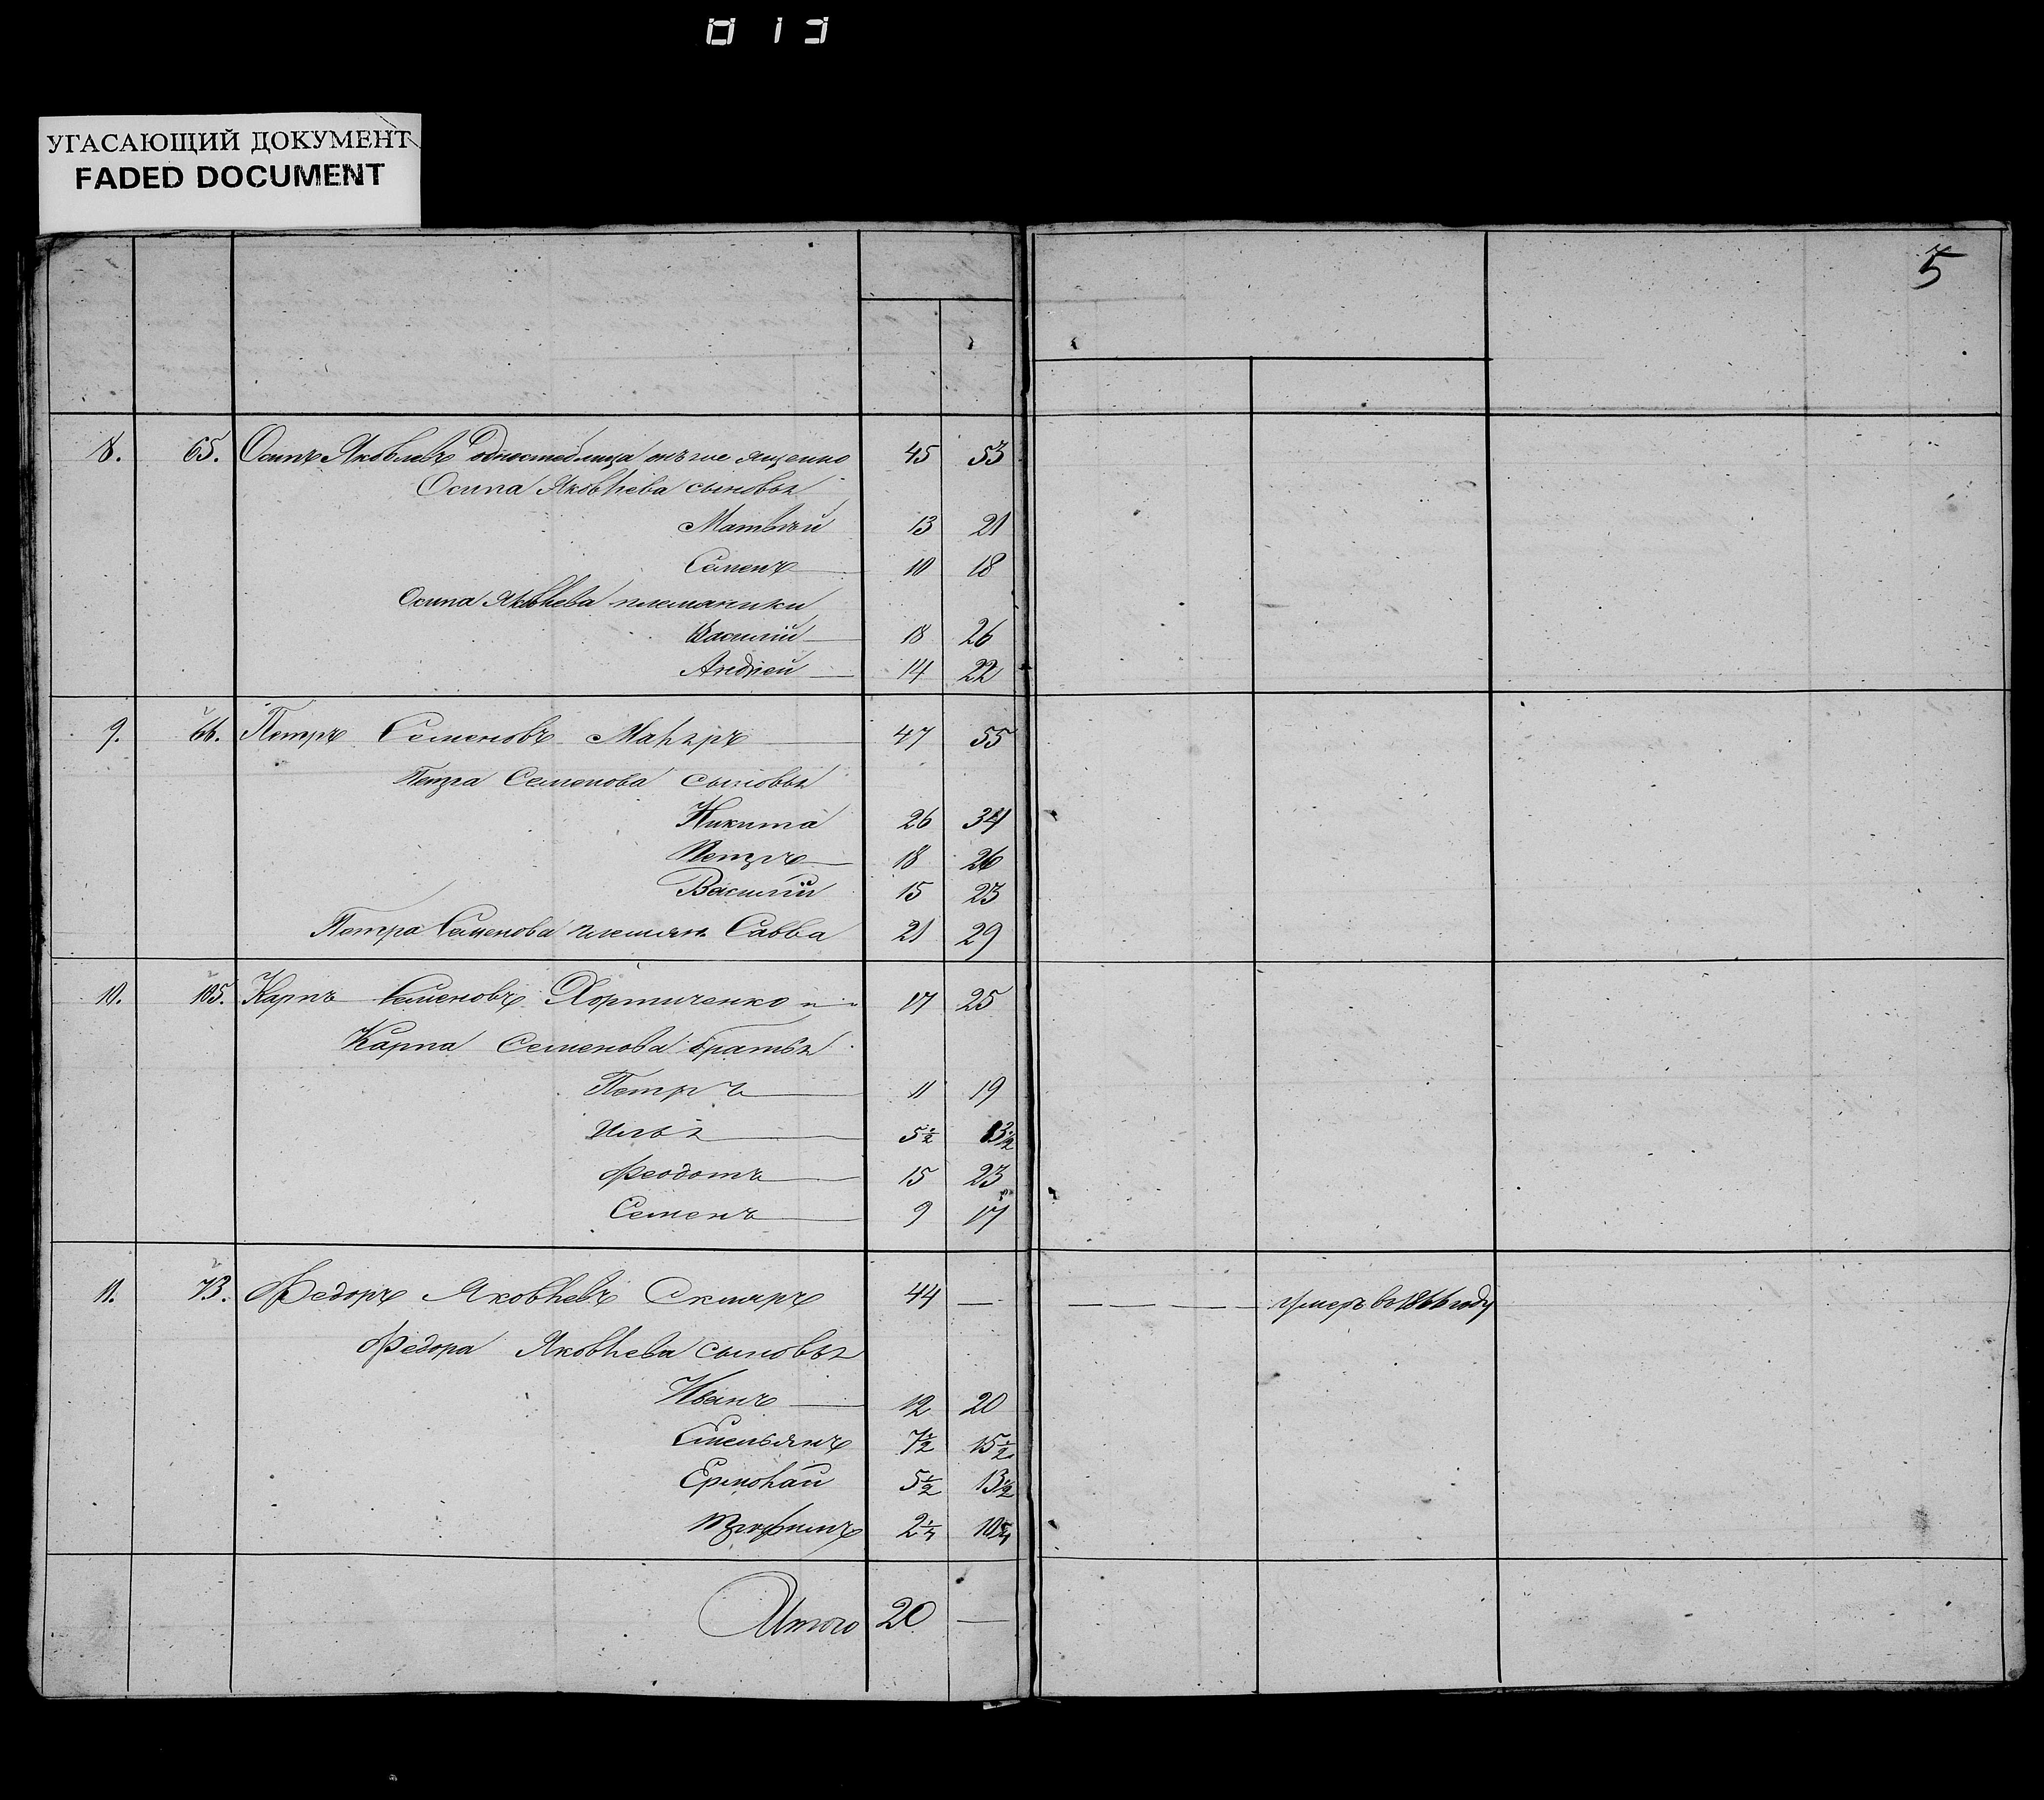 013
УГАСАЮЩИЙ ДОКУМЕНТ
FADED DOCUMENT
5
8. 65. Осипъ Яковлевъ Одностеблица онъ же Ященко 45 53
Осипа Яковлева сыновья
Матвѣй 13 21
Семенъ 10 18
Осипа Яковлева племяники
Василій 18 26
Андрей 14 22
9. 66. Петръ Семеновъ 47 55
Петра Семенова сыновья
Никита 26 34
Петръ 18 26
Василій 15 23
Петра Семенова племян. Савва 21 29
10. 105. Карпъ Семеновъ Хортиченко 17 25
Карпа Семенова братья
Петръ 11 19
Илья 5½ 13½
Феодотъ 15 23
Семенъ 9 17
11. 73. Федоръ Яковлевъ Скляръ 44 — умеръ въ 1866 году
Федора Яковлева сыновья
Иванъ 12 20
Емельянъ 7½ 15½
Ермолай 5½ 13½
Трофимъ 2¼ 10¼
Итого 20 —